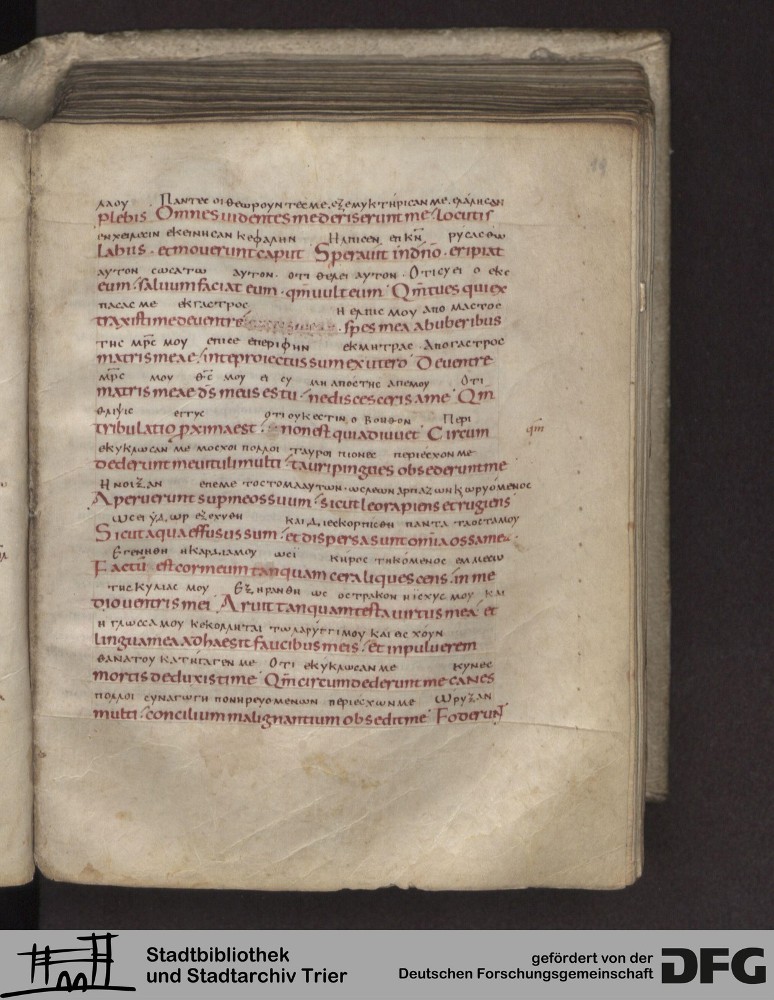 19
λαου Παντες οι θεωρουντες με. εξεμυκτηρισαν με. φαλησαν
plebis Omnes uidentes me deriserunt me · Locutis
εν χειλεσιν εκεινησαν κεφαλην Ηλπισεν επι κν ρυσασθω
Labiis · et mouerunt caput Sperauit in dno · eripiat
αυτον σωσατω αυτον · οτι θελει αυτον · Οτι συ ει ο εκς
eum · saluum faciat eum · qm uult eum Qm tu es qui ex
πασας με εκ γαστρος η ελπις μου απο μαστος
traxisti me de uentre spes mea ab uberibus
της μρς μου επι σε επεριφην εκ μητρας · Απο γαστρος
matris meae · in te proiectus sum ex utero De uentre
μρς μου θς μου ει συ μη αποστης απ εμου Οτι
matris meae ds meus es tu · ne discesceris a me Qm
θλιψις εγγυς οτι ουκ εστιν ο βοηθον Περι
tribulatio proxima est · non est qui adiuuet Circum qm
εκυκλωσαν με μοσχοι πολλοι ταυροι πιονες περιεσχον με
dederunt me uituli multi · tauri pingues obsederunt me
Ηνοιξαν επ εμε το στομα αυτων · ως λεων αρπαζων κ ωρυομενος
Aperuerunt sup me os suum · sicut leo rapiens et rugiens
Ωσει υδωρ εξεχυθη και διεσκορπισθη παντα τα οστα μου
Sicut aqua effusus sum · et dispersa sunt omia ossa me
Εγενηθη η καρδια μου ωσι κηρος τηκομενος εμ μεσω
Factu est cor meum tanquam cera liquescens · in me
της κυλιας μου Εξηρανθη ως οστρακον η ισχυς μου και
dio uentris mei Aruit tanquam testa uirtus mea · et
η γλωσσα μου κεκολληται τω λαρυγγι μου και εις χουν
lingua mea adhaesit faucibus meis · et in puluerem
θανατου κατηγαγεν με Οτι εκυκλωσαν με κυνες
mortis deduxisti me Qm circumdederunt me canes
πολλοι συναγωγη πονηρευομενων περιεσχων με Ωρυξαν
multi · concilium malignantium obsedit me Foderunt
Stadtbibliothek
und Stadtarchiv Trier
gefördert von der
Deutschen Forschungsgemeinschaft
DFG